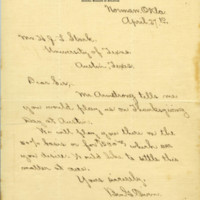 Norman, Okla
April 27
Mr. H. J. L. Stark
University of Texas
Austin, Texas.
Dear Sir:
Mr Armstrong tells me
you would play us on Thanksgiving
Day at Austin.
We will play you there on the
basis of for $
you desire. Would like to settle this
matter at now.
Yours Sincerely,
Owen